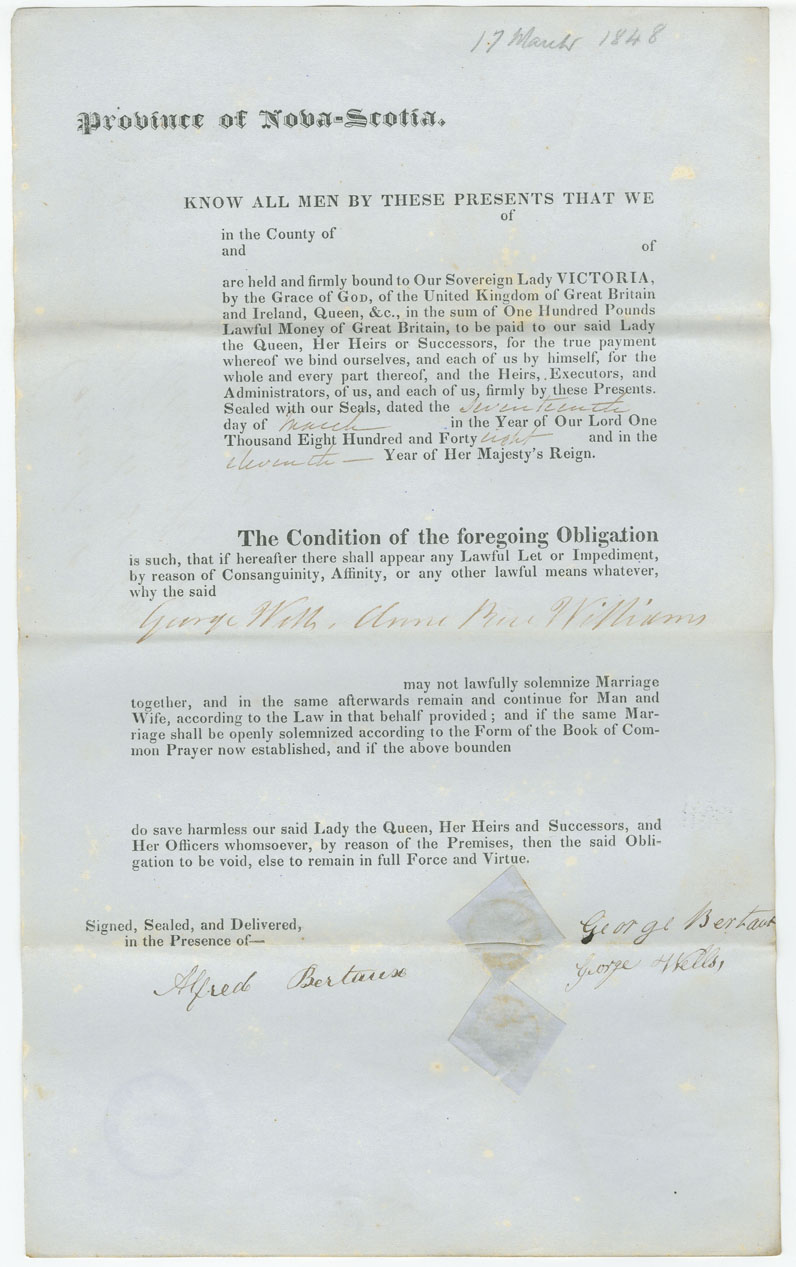 17 March 1848
Province of Nova-Scotia.
KNOW ALL MEN BY THESE PRESENTS THAT WE
of
in the County of
and of
are held and firmly bound to Our Sovereign Lady VICTORIA,
by the Grace of GOD, of the United Kingdom of Great Britain
and Ireland, Queen, &c., in the sum of One Hundred Pounds
Lawful Money of Great Britain, to be paid to our said Lady
the Queen, Her Heirs or Successors, for the true payment
whereof we bind ourselves, and each of us by himself, for the
whole and every part thereof, and the Heirs, Executors, and
Administrators, of us, and each of us, firmly by these Presents.
Sealed with our Seals, dated the seventeenth
day of March in the Year of Our Lord One
Thousand Eight Hundred and Forty eight and in the
eleventh — Year of Her Majesty's Reign.
The Condition of the foregoing Obligation
is such, that if hereafter there shall appear any Lawful Let or Impediment,
by reason of Consanguinity, Affinity, or any other lawful means whatever,
why the said
George Wells, Anne Williams
may not lawfully solemnize Marriage
together, and in the same afterwards remain and continue for Man and
Wife, according to the Law in that behalf provided; and if the same Mar-
riage shall be openly solemnized according to the Form of the Book of Com-
mon Prayer now established, and if the above bounden
do save harmless our said Lady the Queen, Her Heirs and Successors, and
Her Officers whomsoever, by reason of the Premises, then the said Obli-
gation to be void, else to remain in full Force and Virtue.
Signed, Sealed, and Delivered,
in the Presence of—
George Bertaux
George Wells,
Alfred Bertaux